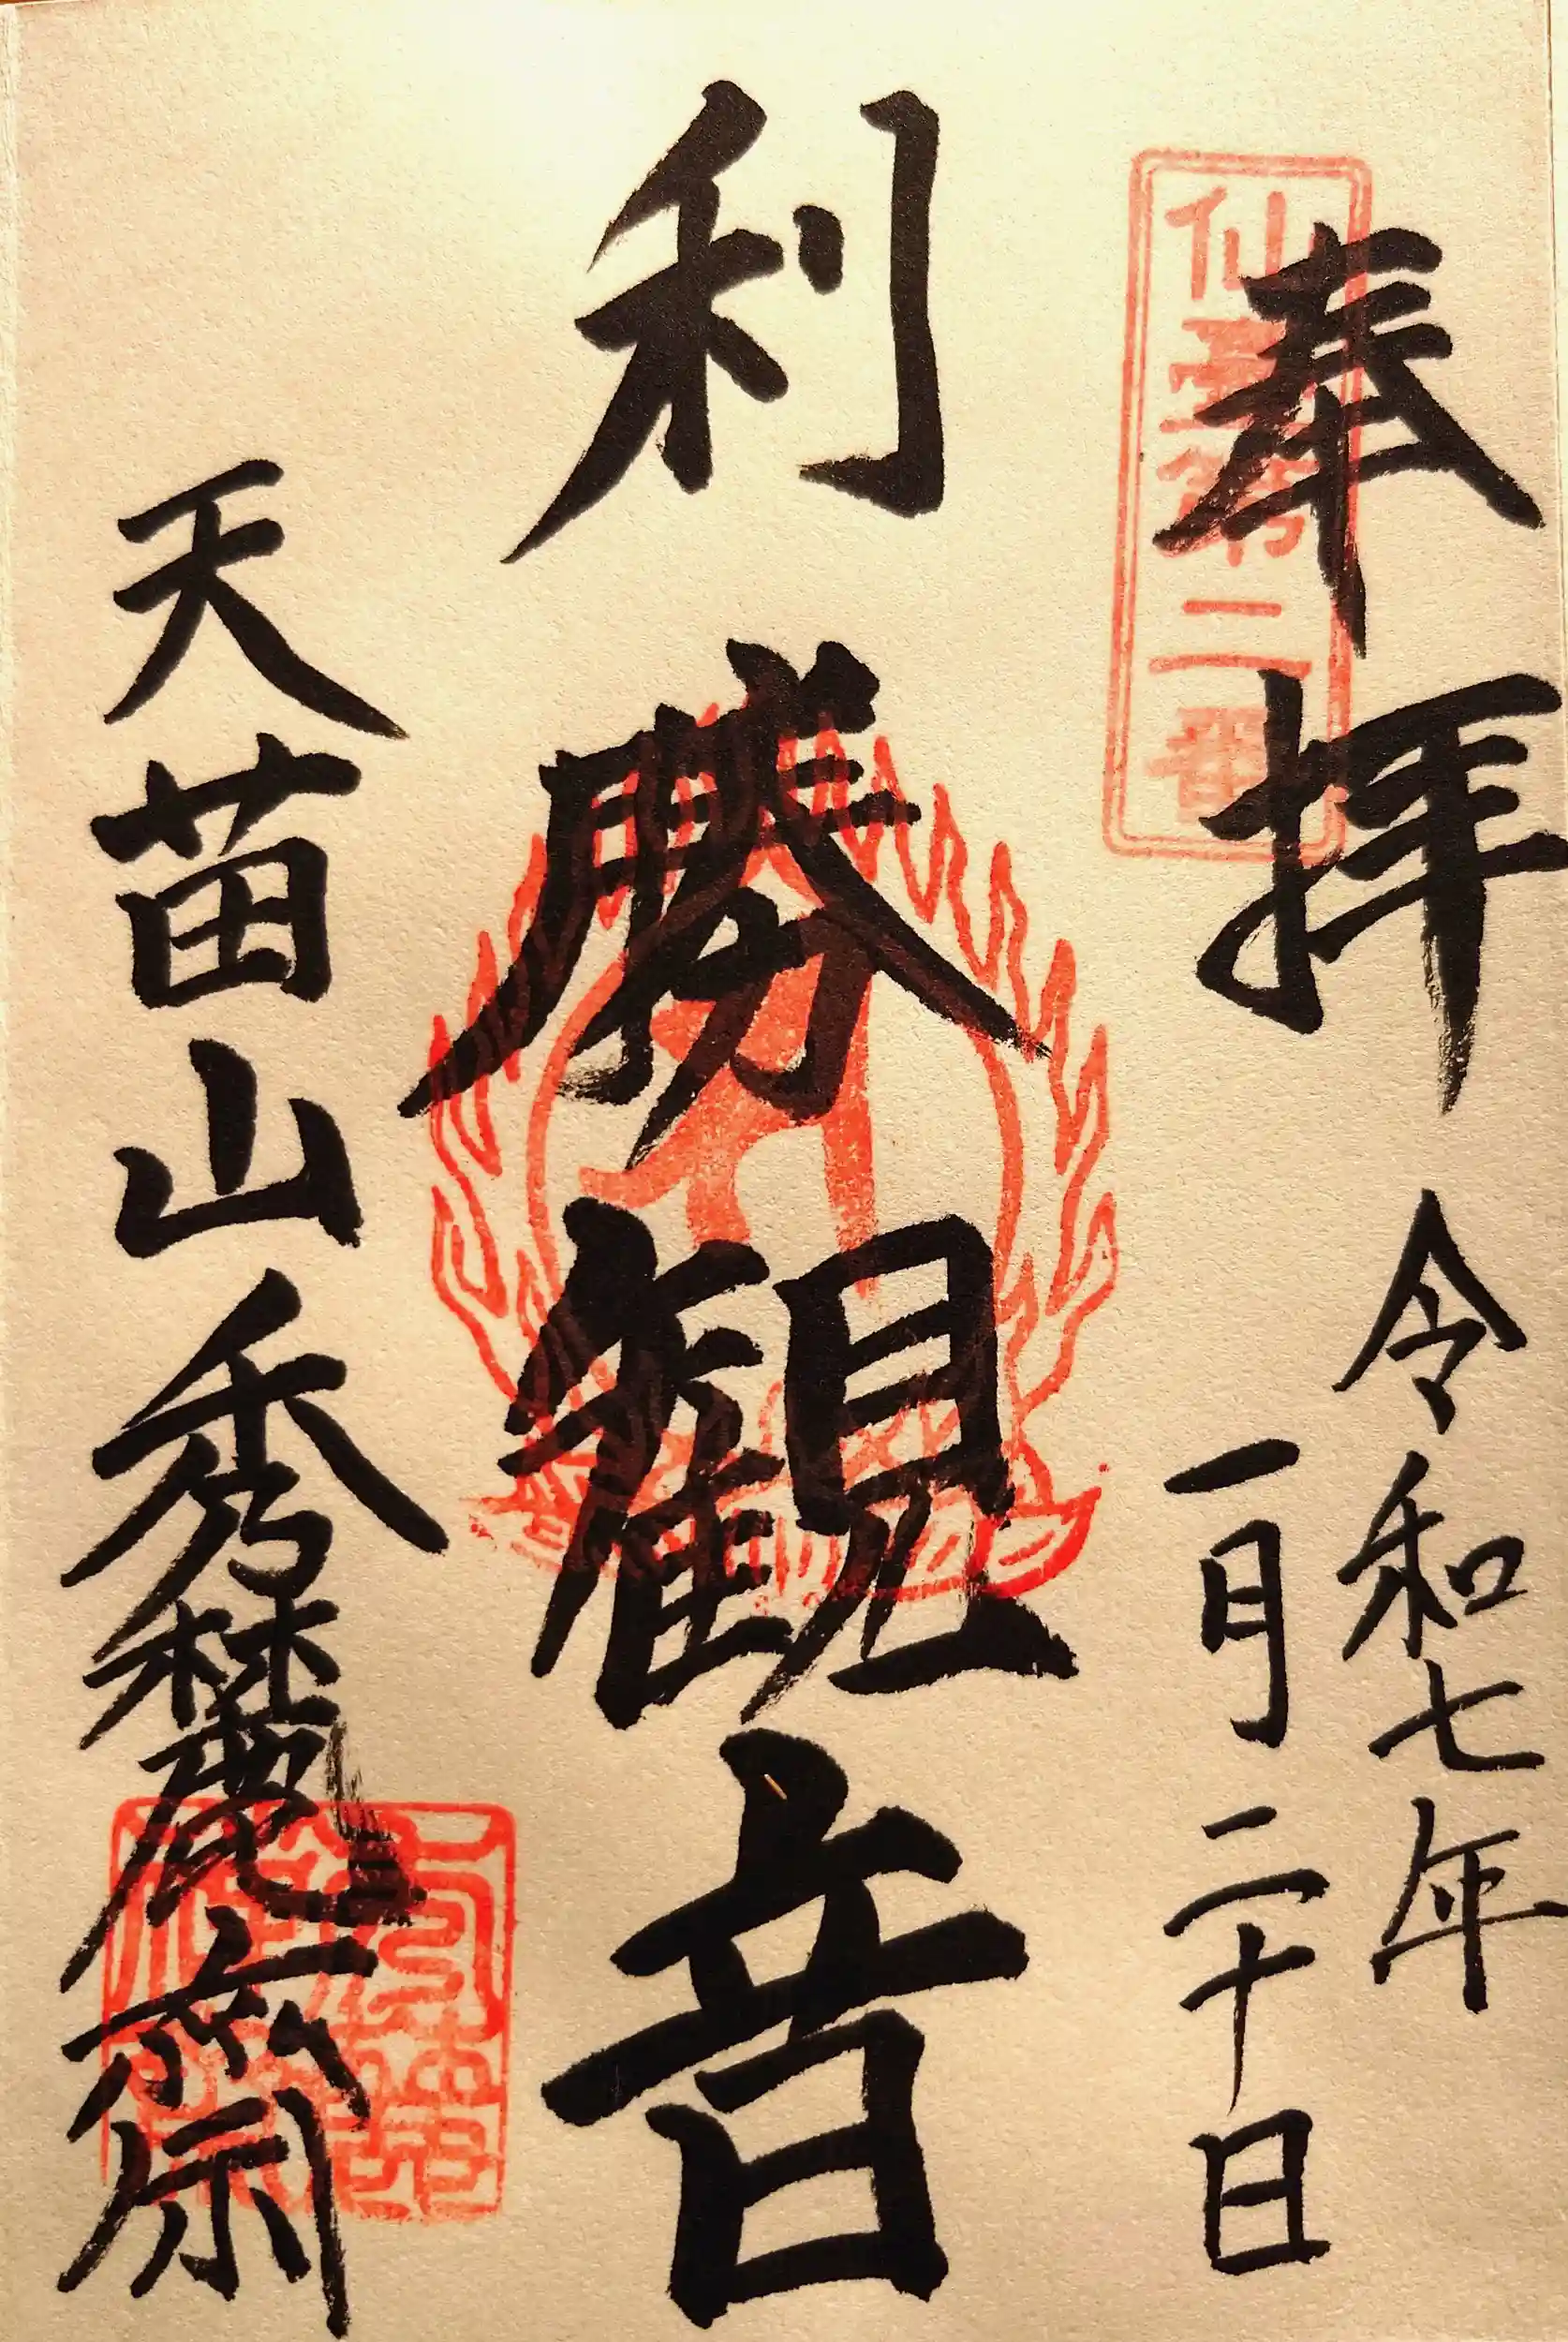 奉拝
仙臺第二番
令和七年
一月二十日
利勝観音
天苗山秀麓齋